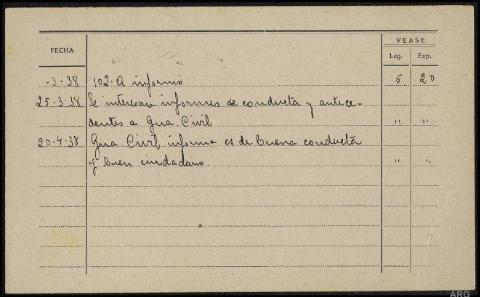 VEASE
FECHA Leg. Exp.
-3-38 102-A informó 5 20
25-3-38 Se interesan informes de conducta y antece-
dentes a Gua. Civil " "
20-4-38 Gua. Civil informa es de buena conducta
y buen ciudadano. " "
ARG